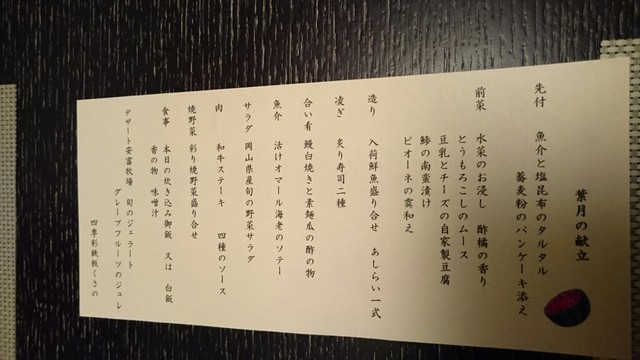 葉月の献立
先付　魚介と塩昆布のタルタル
蕎麦粉のパンケーキ添え
前菜　水菜のお浸し　酢橘の香り
とうもろこしのムース
豆乳とチーズの自家製豆腐
鯵の南蛮漬け
ピオーネの霙和え
造り　入荷鮮魚盛り合せ　あしらい一式
凌ぎ　炙り寿司二種
合い肴　鰻白焼きと素麺瓜の酢の物
魚介　活けオマール海老のソテー
サラダ　岡山県産旬の野菜サラダ
肉　和牛ステーキ　四種のソース
焼野菜　彩り焼野菜盛り合せ
食事　本日の炊き込み御飯　又は　白飯
香の物　味噌汁
デザート　安富牧場　旬のジェラート
グレープフルーツのジュレ
四季彩鉄板くさの